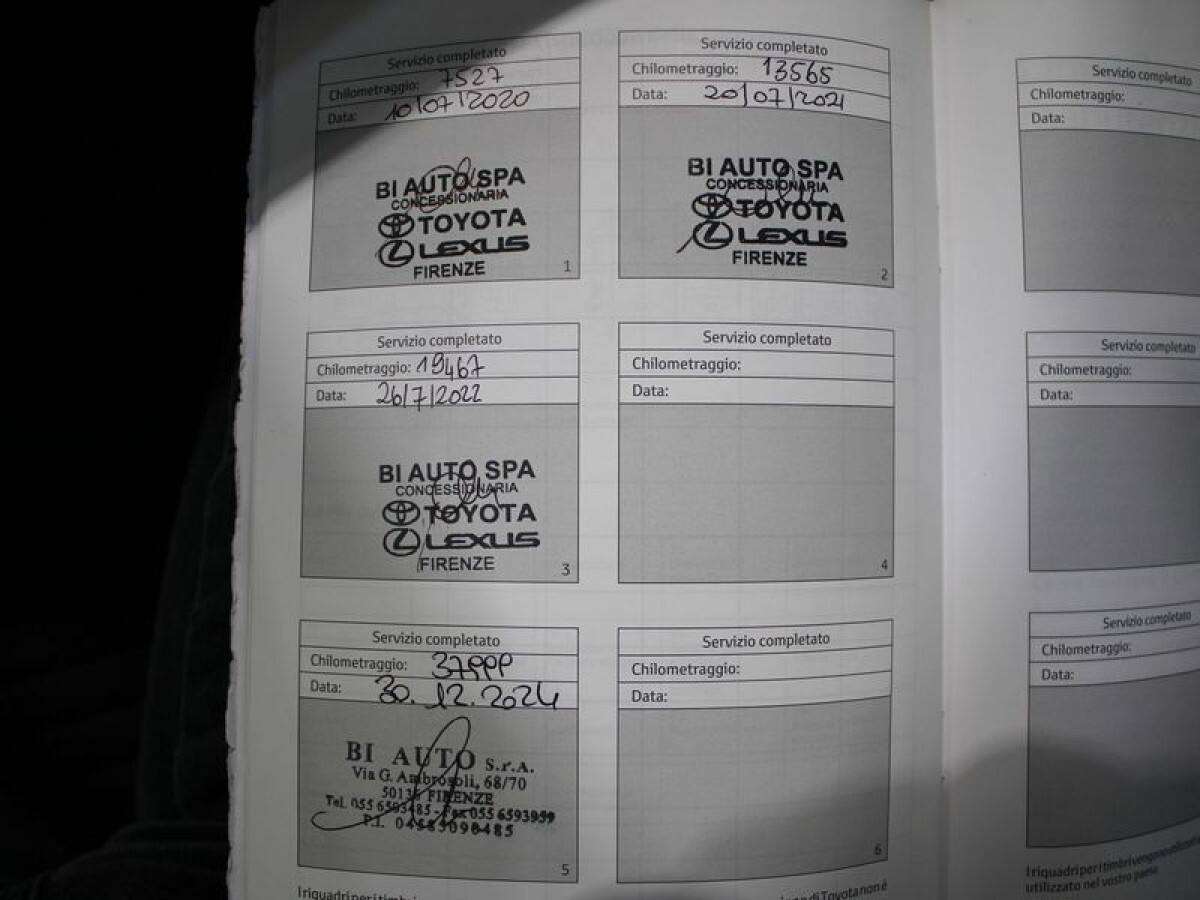 Servizio completato
Chilometraggio: 7527
Data: 10/07/2020
BI AUTO SPA
CONCESSIONARIA
TOYOTA
LEXUS
FIRENZE
1
Servizio completato
Chilometraggio: 13565
Data: 20/07/2021
BI AUTO SPA
CONCESSIONARIA
TOYOTA
LEXUS
FIRENZE
2
Servizio completato
Chilometraggio: 19467
Data: 26/7/2022
BI AUTO SPA
CONCESSIONARIA
TOYOTA
LEXUS
FIRENZE
3
Servizio completato
Chilometraggio:
Data:
4
Servizio completato
Chilometraggio:
Data: 30.12.2024
BI AUTO S.r.A.
Via G. Ambrosoli, 68/70
FIRENZE
Tel. 055 6593485 - Fax 055 6593959
P.I.
5
Servizio completato
Chilometraggio:
Data:
6
I riquadri per i timbri
di Toyota non è
Servizio completato
Chilometraggio:
Data:
Servizio completato
Chilometraggio:
Data:
Servizio completato
Chilometraggio:
Data:
I riquadri per i timbri vengono
utilizzato nel vostro paese